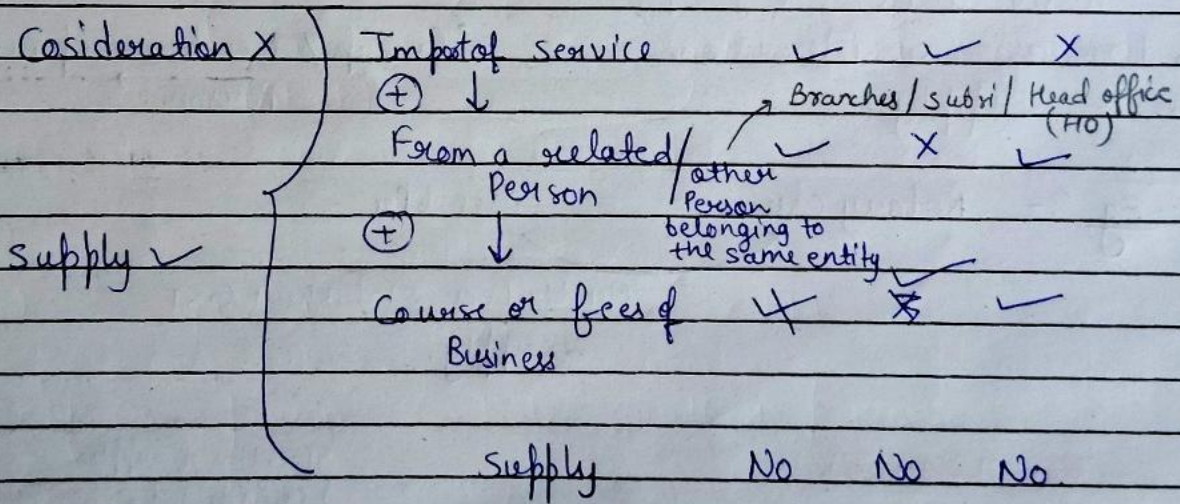 Cosideration X Import of service ✓ ✓ X
(+) ↓ Branches / subri / Head office
(HO)
From a related / ✓ X ✓
Person / other
Person
belonging to
(+) ↓ the same entity
Supply ✓
Course or fees of X ✓ ✓
Business
Supply No No No.